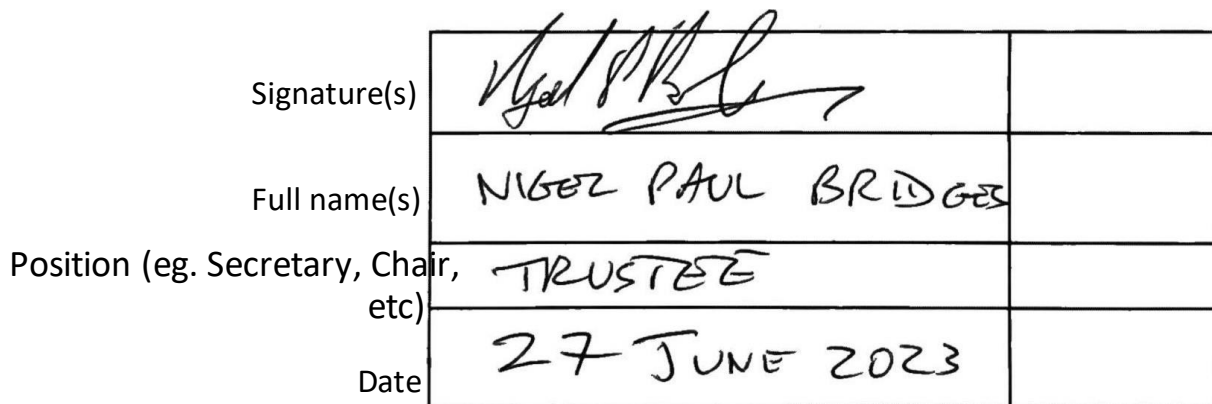 Signature(s)
Full name(s) NIGEL PAUL BRIDGES
Position (eg. Secretary, Chair, TRUSTEE
etc)
Date 27 JUNE 2023